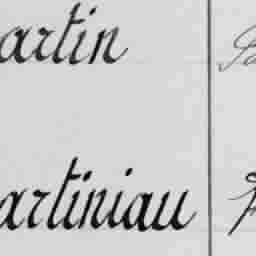 artin
artiniau